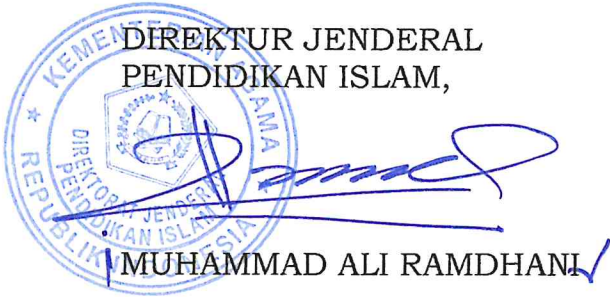 DIREKTUR JENDERAL
PENDIDIKAN ISLAM,
KEMENTERIAN AGAMA
REPUBLIK INDONESIA
DIREKTORAT JENDERAL
PENDIDIKAN ISLAM
MUHAMMAD ALI RAMDHANI